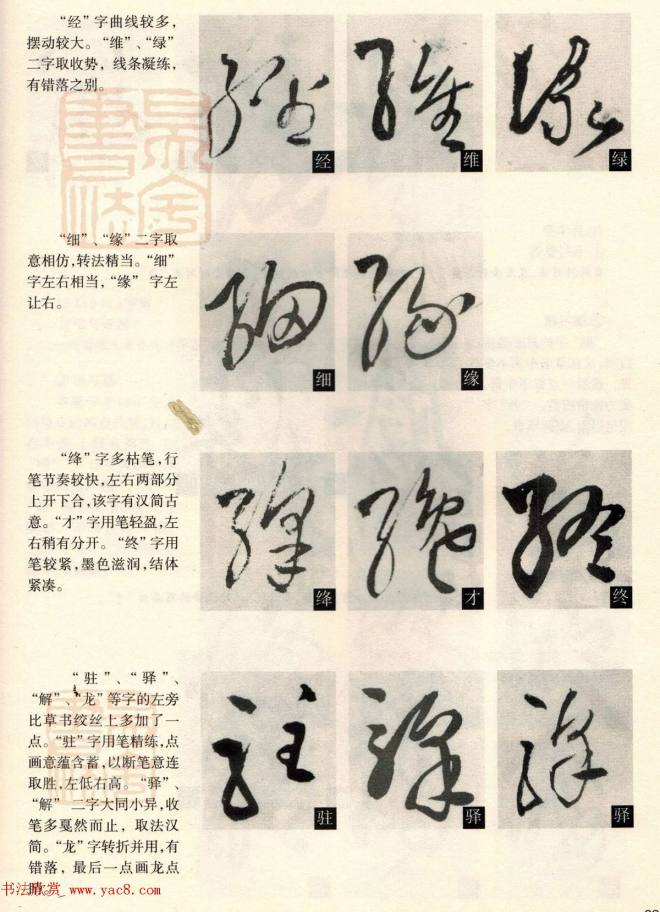 “经”字曲线较多，
摆动较大。“维”、“绿”
二字取收势，线条凝练，
有错落之别。
经
维
绿
“细”、“缘”二字取
意相仿，转法精当。“细”
字左右相当，“缘” 字左
让右。
细
缘
“绛”字多枯笔，行
笔节奏较快，左右两部分
上开下合，该字有汉简古
意。“才”字用笔轻盈，左
右稍有分开。“终”字用
笔较紧，墨色滋润，结体
紧凑。
绛
才
终
“驻”、“驿”、
“解”、“龙”等字的左旁
比草书绞丝上多加了一
点。“驻”字用笔精练，点
画意蕴含蓄，以断笔意连
取胜，左低右高。“驿”、
“解” 二字大同小异，收
笔多戛然而止，取法汉
简。“龙”字转折并用，有
错落，最后一点画龙点
睛。
驻
驿
驿
书法欣赏 www.yac8.com